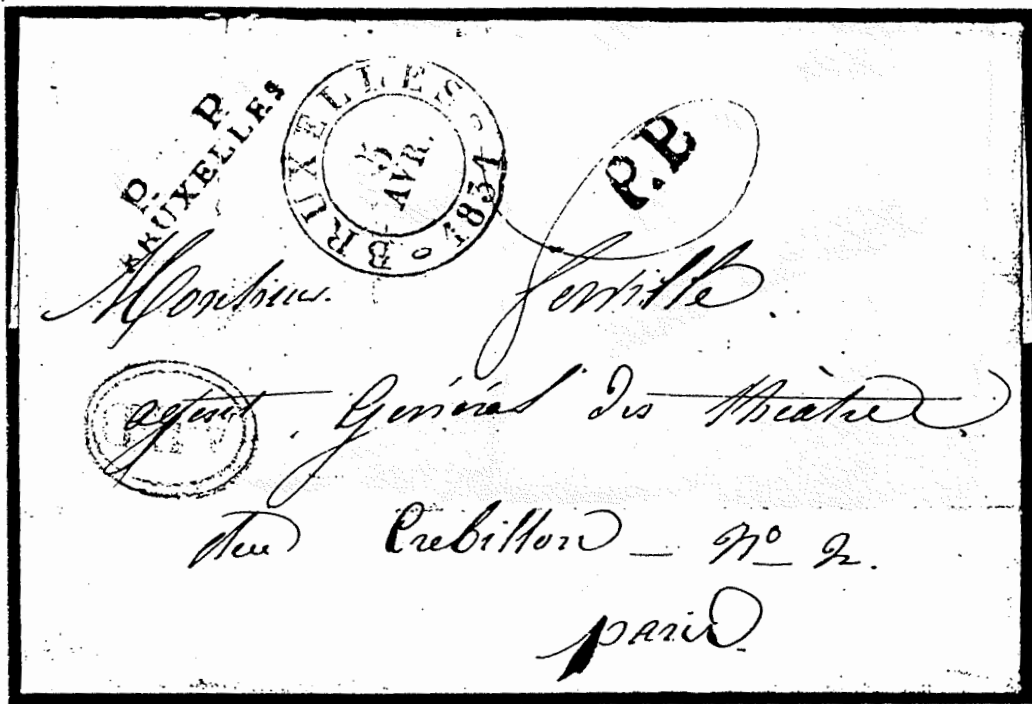 P. P.
BRUXELLES
BRUXELLES 1831
5
AVR.
P.P.
Monsieur.
agent Général des théâtre
Rue Crebillon _ No 2.
paris